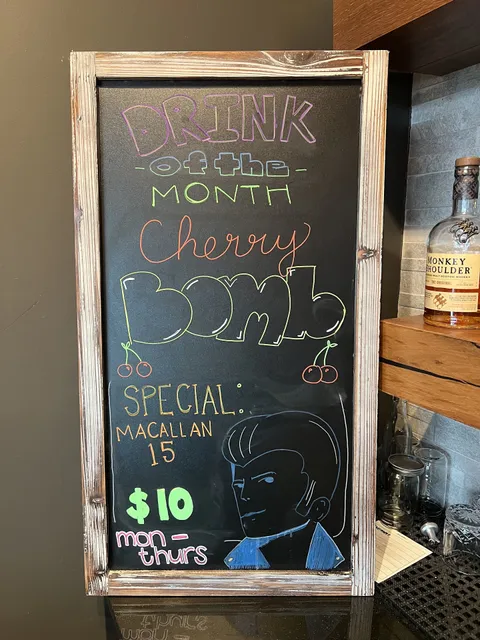 DRINK
-of the-
MONTH
Cherry
Bomb
SPECIAL:
MACALLAN
15
$10
mon -
thurs
MONKEY
SHOULDER